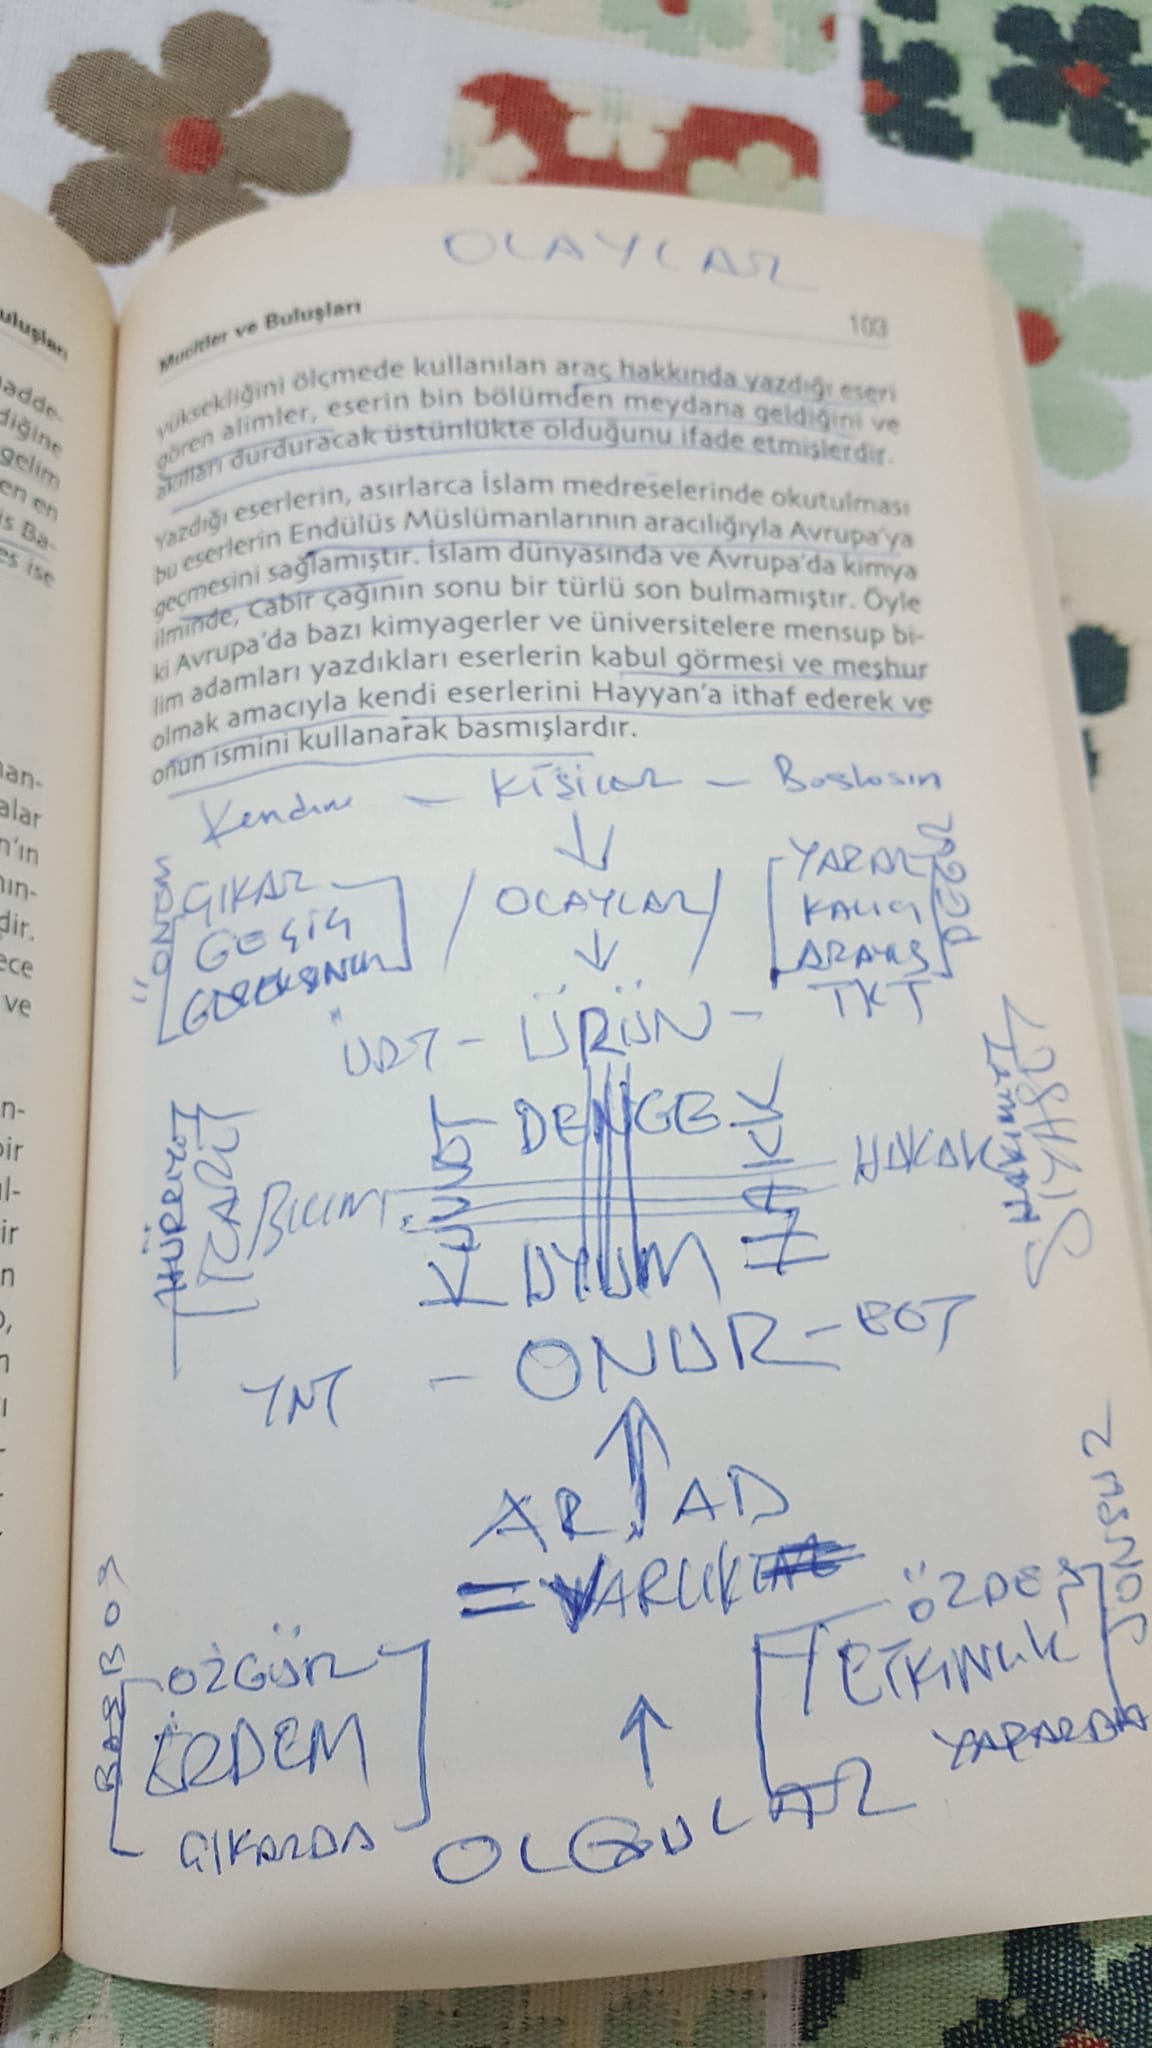 OLAYLAR
uluşları
Mucitler ve Buluşları
103
yüksekliğini ölçmede kullanılan araç hakkında yazdığı eseri
gören alimler, eserin bin bölümden meydana geldiğini ve
akılları durduracak üstünlükte olduğunu ifade etmişlerdir.
Yazdığı eserlerin, asırlarca İslam medreselerinde okutulması
bu eserlerin Endülüs Müslümanlarının aracılığıyla Avrupa'ya
geçmesini sağlamıştır. İslam dünyasında ve Avrupa'da kimya
ilminde, Cabir çağının sonu bir türlü son bulmamıştır. Öyle
ki Avrupa'da bazı kimyagerler ve üniversitelere mensup bi-
lim adamları yazdıkları eserlerin kabul görmesi ve meşhur
olmak amacıyla kendi eserlerini Hayyan'a ithaf ederek ve
onun ismini kullanarak basmışlardır.
Kendine - Kişiler -
ÇIKAR
GEÇİŞ
OLAYLAR
YARAR
KALICI
ARAYIŞ
TKT
ÜRT - ÜRÜN -
DENGE
HÜRRİYET
BİLİM
KUVVET
HAKAK
HAKİMİ
SİYASET
UYUM
YNT - ONUR - EGT
AR AD
= VARLIK
BAŞBOŞ
ÖZGÜR
ERDEM
ÇIKARDA
ÖZDEŞ
ETKİNLİK
YARARDA
SONSUZ
OLGULAR